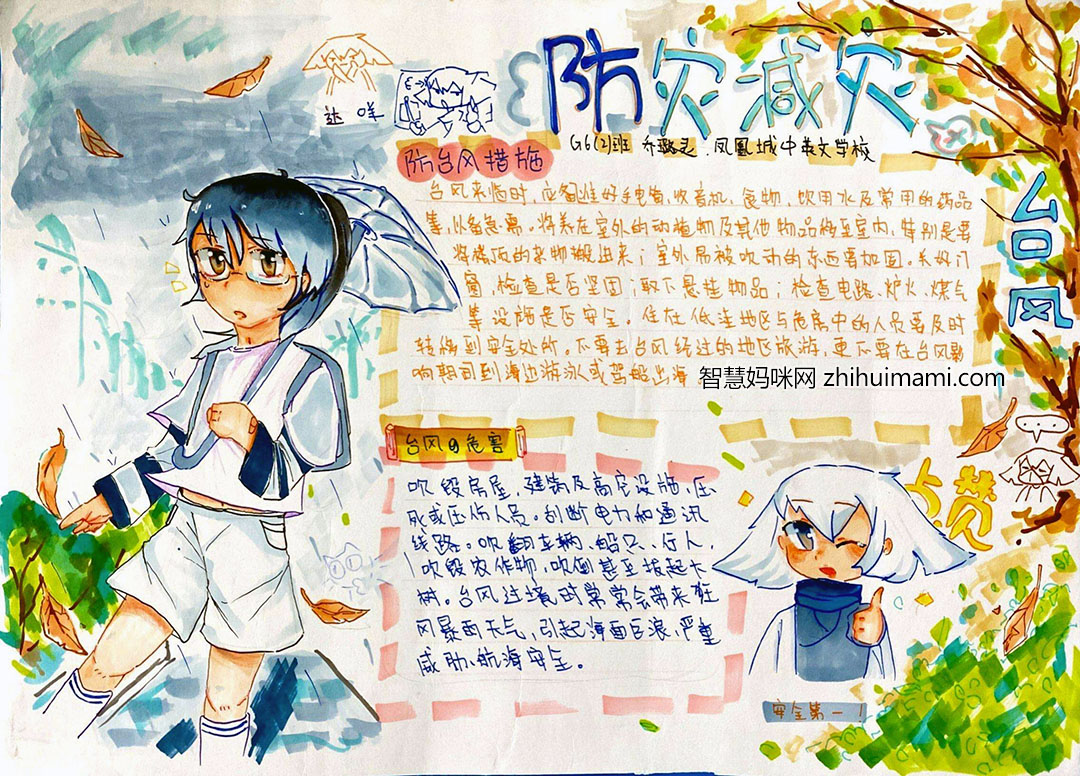 防灾减灾
G6(2)班 乔 . 凤凰城中英文学校
台风
达 咩
防台风措施
台风来临时,应备准好手电筒,收音机,食物,饮用水及常用的药品
等,以备急需。将养在室外的动植物及其他物品移至室内,特别是要
将楼顶的杂物搬出来;室外易被吹动的东西要加固。关好门
窗,检查是否坚固;取下悬挂物品;检查电路、炉火、煤气
等设施是否安全。住在低洼地区与危房中的人员要及时
转移到安全处所。不要去台风经过的地区旅游,更不要在台风影
响期间到海边游泳或驾船出海
智慧妈咪网 zhihuimami.com
台风的危害
吹毁房屋,建筑及高空设施、压
死或压伤人员。刮断电力和通讯
线路。吹翻车辆、船只、行人,
吹毁农作物,吹倒甚至拔起大
树。台风过境时常常会带来狂
风暴雨天气,引起海面巨浪,严重
威胁、航海安全。
点赞
安全第一!